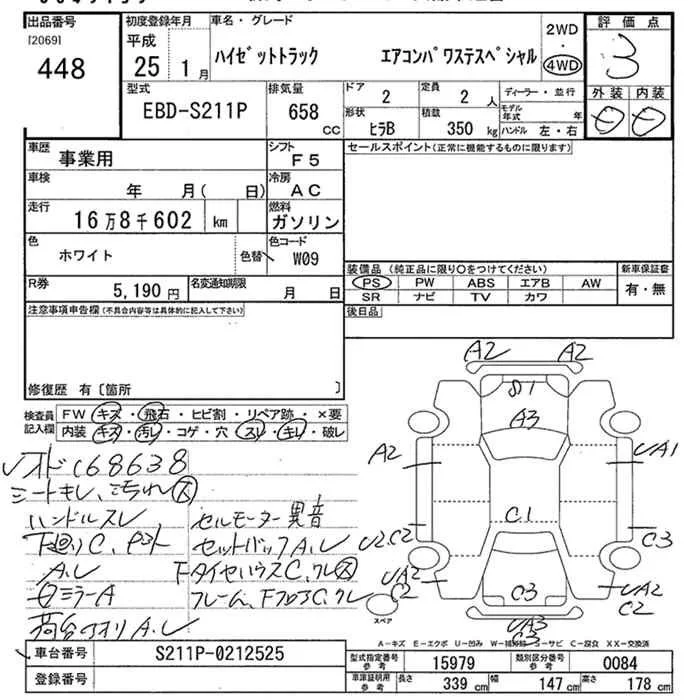 出品番号 初度登録年月 車名・グレード 2WD 評価点
[2069] 平成 ハイゼットトラック エアコンパワステスペシャル ・ 3
448 25 1月 4WD
型式 排気量 ドア 定員 ディーラー・並行 外装 内装
EBD-S211P 658 cc 2 2人 モデル年式 年
形状 積載 ハンドル 左・右
ヒラB 350 kg
車歴 事業用 シフト F5 セールスポイント(正常に機能するものに限ります)
車検 年 月( 日) 冷房 AC
走行 16万8千602 km 燃料 ガソリン
色 ホワイト 色替 色コード W09
装備品 (純正品に限り○をつけてください) 新車保証書
R券 5,190円 名変通知期限 月 日 PS PW ABS エアB AW 有・無
SR ナビ TV カワ
注意事項申告欄(不具合内容等は具体的に記入して下さい) 後日品
修復歴 有〔箇所 〕
検査員記入欄 FW キズ・飛石・ヒビ割・リペア跡・×要
内装 キズ・汚レ・コゲ・穴・スレ・キレ・破レ
68638
シートキレ、汚れ大
ハンドルスレ セルモーター異音
下廻りC、 セットバックA.レ
A.レ
ミラーA
荷台アオリA.レ
A2 A2
A3
A2 UA1
C.1
U2.C2 C3
UA2 C2 C3 UA2 C2
スペア UA3 C3
A-キズ E-エクボ U-凹み C-腐食 XX-交換済
車台番号 S211P-0212525 型式指定番号 参考 15979 類別区分番号 参考 0084
登録番号 車庫証明用 参考 長さ 339 cm 幅 147 cm 高さ 178 cm